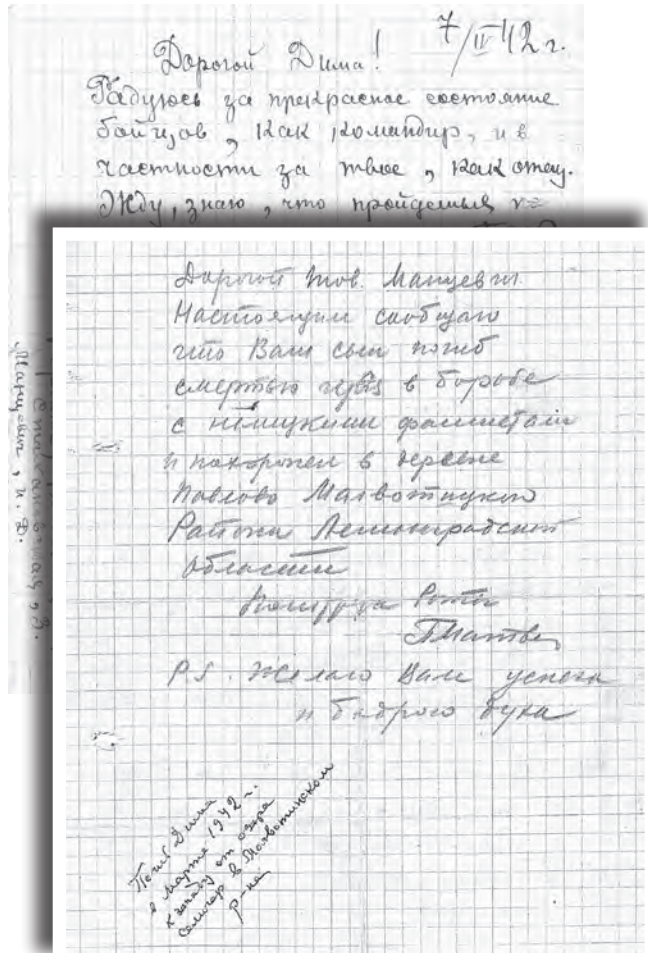 7/II 42 г.
Дорогой Дима!
Радуюсь за прекрасное состояние
бойцов, как командир, и в
частности за твое, как отец.
Жду, знаю, что пройдешь
Манцевич, И. Д.
Дорогой тов. Манцевич.
Настоящим сообщаю
что Ваш сын погиб
смертью в борьбе
с немецкими фашистами
и похоронен в деревне
Павлово Молвотицкого
Района Ленинградской
области
Политрук Роты
P.S. Желаю Вам успеха
и бодрого духа
Погиб Дима
в марте 1942 г.
к западу от озера
Селигер в Молвотинском
р-не